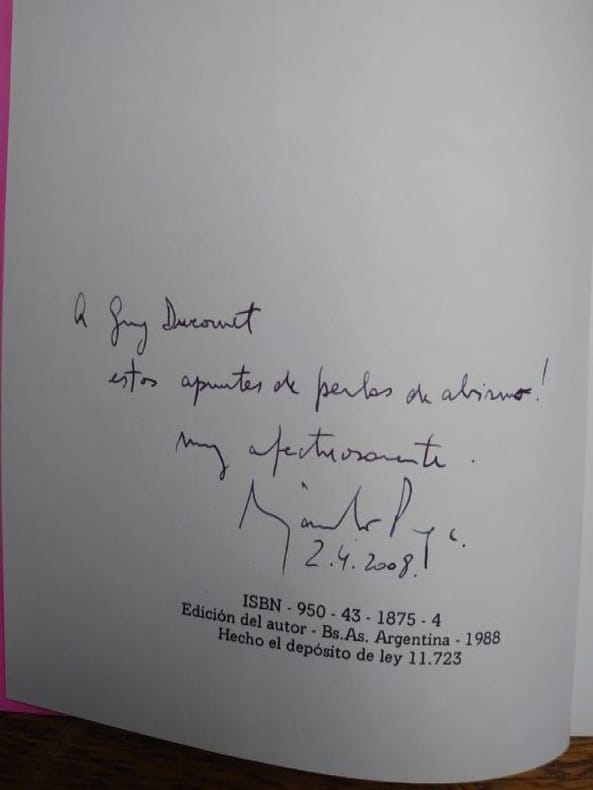 A Guy Ducornet
estos apuntes de perlas de abismo!
muy afectuosamente.
2.4.2008.
ISBN - 950 - 43 - 1875 - 4
Edición del autor - Bs.As. Argentina - 1988
Hecho el depósito de ley 11.723